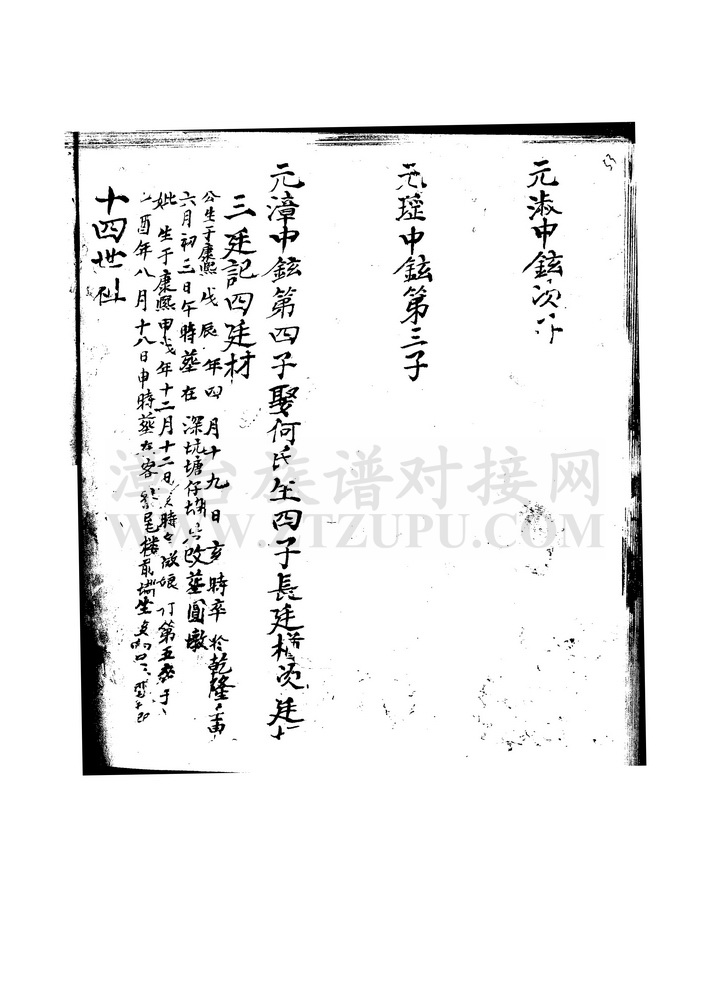 元淑中鉉次
元瑆中鉉第三子
元漳中鉉第四子娶何氏生四子長廷樁次廷
三廷記四廷材
公生于康熙戊辰年四月十九日亥時卒於乾隆
六月初三日午時葬在深坑塘仔改葬圓墩
妣生于康熙甲戌年十二月十二日時娘第五
酉年八月十八日申時葬在客尾樓
十四世祖
漳台族谱对接网
WWW.ZTZUPU.COM